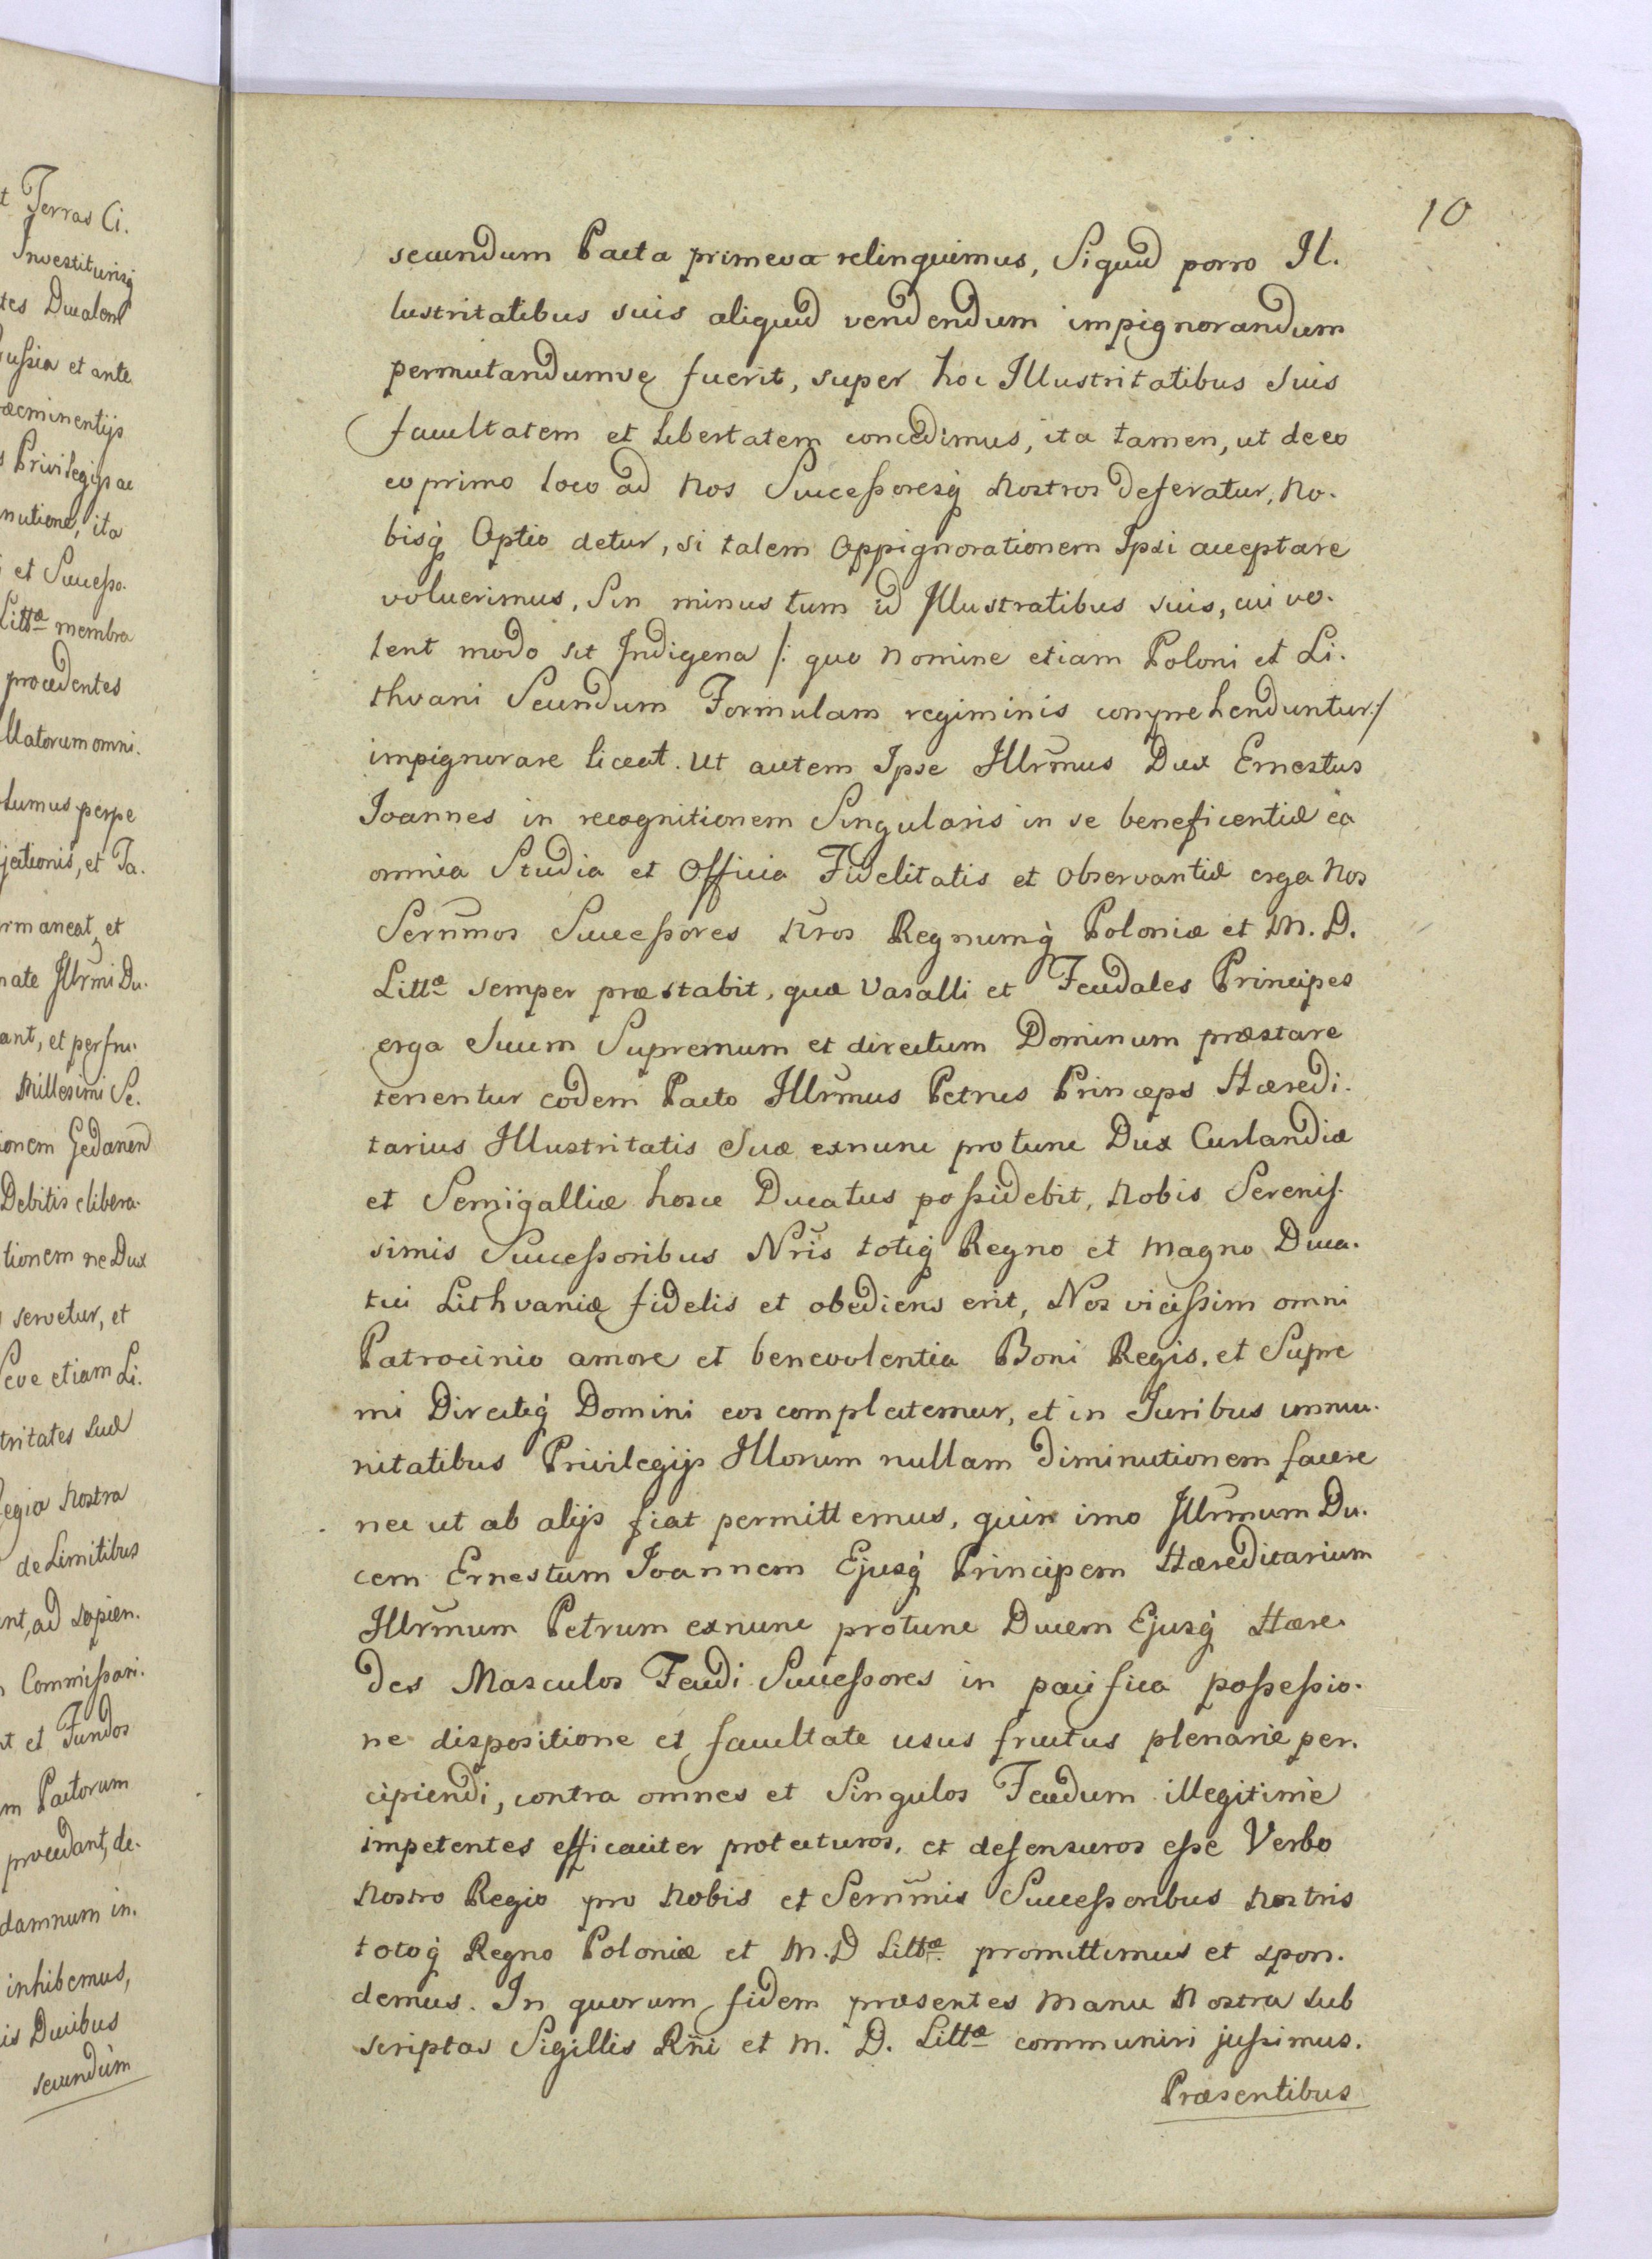 t Terras Ci.
Investiturisq̀
tes Ducalem
ussia et ante
æeminentijs
s Privilegijs ac
nutione, ita
et Successo.
Littæ membra
procedentes
llatorum omni.
tumus perpe
jectionis, et Ta.
rmaneat, et
nate Illrmi Du.
ant, et perfru.
Millesimi Se.
ionem Gedanen
Debitis elibera.
tionem ne Dux
servetur, et
eve etiam Li.
tritates Suæ
egia Nostra
de Limitibus
nt, ad sopien.
Commissari.
nt et Fundos
m Pactorum
procedant, de.
damnum in.
inhibemus,
is Ducibus
secundùm
10
secundum Pacta primeva relinquimus, Siquid porro Il.
lustritatibus suis aliquid vendendum impignorandum
permutandumve fuerit, super hoc Illustritatibus Suis
facultatem et Libertatem concedimus, ita tamen, ut de eo
eo primo loco ad Nos Successoresq̀ Nostros deferatur, No.
bisq̀ Optio detur, si talem Oppignorationem Ipsi acceptare
voluerimus, Sin minus tum id Illustratibus suis, cui vo.
lent modo sit Indigena /: quo Nomine etiam Poloni et Li.
thvani Secundum Formulam regiminis comprehenduntur:/
impignorare liceat. Ut autem Ipse Illrmus Dux Ernestus
Joannes in recognitionem Singularis in se beneficentiæ ea
omnia Studia et Officia Fidelitatis et Observantiæ erga Nos
Sernmos Successores Nros Regnumq̀ Poloniæ et M. D.
Littæ semper præstabit, quæ Vasalli et Feudales Principes
erga Suum Supremum et directum Dominum præstare
tenentur eodem Pacto Illrmus Petrus Princeps Hæredi.
tarius Illustritatis Suæ exnunc protunc Dux Curlandiæ
et Semigalliæ hosce Ducatus possidebit, Nobis Serenis.
simis Successoribus Nris totiq̀ Regno et Magno Duca.
tui Lithvaniæ fidelis et obediens erit, Nos vicissim omni
Patrocinio amore et benevolentia Boni Regis, et Supre
mi Directiq̀ Domini eos complectemur, et in Juribus immu.
nitatibus Privilegijs Illorum nullam diminutionem facere
nec ut ab alijs fiat permittemus, quin imo Illrmum Du.
cem Ernestum Joannem Ejusq̀ Principem Hæreditarium
Illrmum Petrum exnunc protunc Ducem Ejusq̀ Hære.
des Masculos Feudi Successores in pacifica possessio.
ne dispositione et facultate usus fructus plenarie per.
cipiendi, contra omnes et Singulos Feudum illegitimè
impetentes efficaciter protecturos, et defensuros esse Verbo
Nostro Regio pro Nobis et Sernmis Successoribus Nostris
totoq̀ Regno Poloniæ et M. D Littæ promittimus et spon.
demus. In quorum fidem præsentes Manu Nostra Sub
scriptas Sigillis Rñi et M. D. Littæ communiri jussimus.
Præsentibus